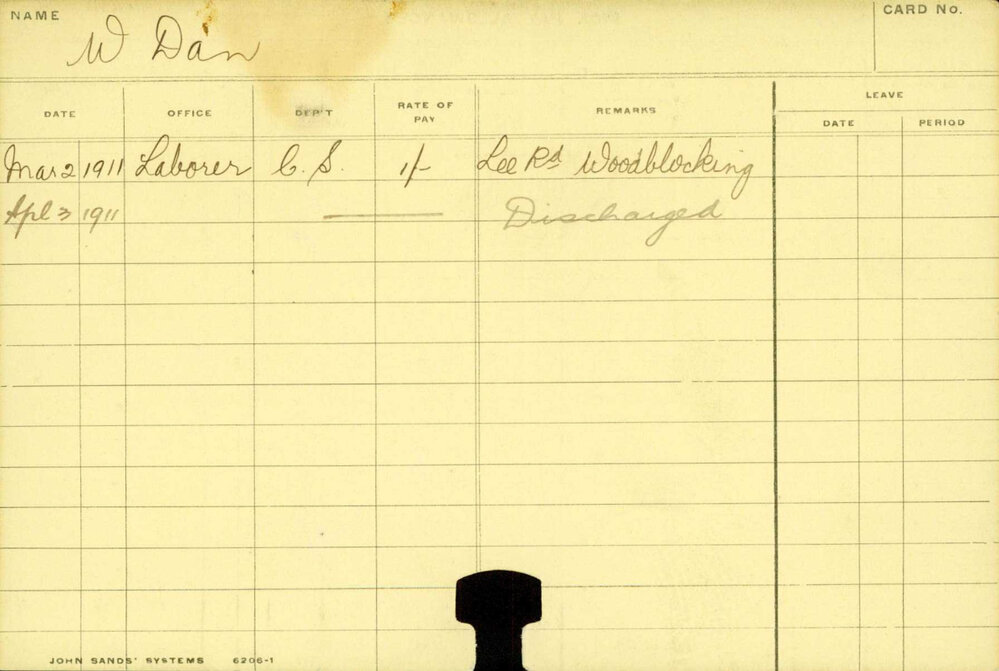 NAME
CARD No.
W Dan
DATE OFFICE DEP'T RATE OF PAY REMARKS LEAVE
DATE PERIOD
Mar 2 1911 Laborer C. S. 1/- Lee Rd Woodblocking
Apl 3 1911 Discharged
JOHN SANDS' SYSTEMS 6206-1